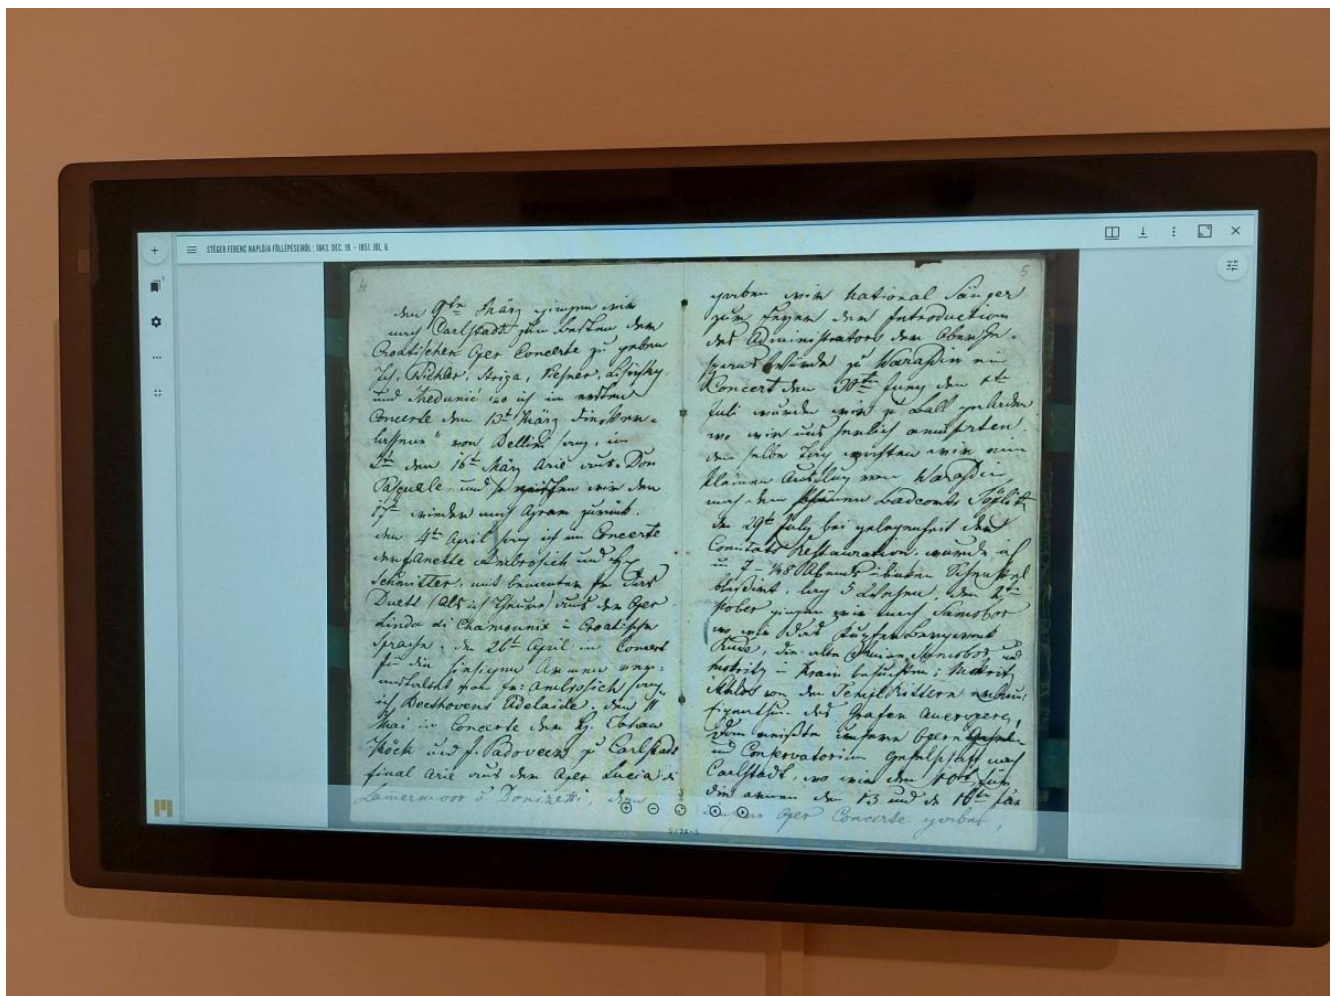 STÉGER FERENC NAPLÓJA FÖLLÉPÉSEIRŐL : 1843. DEC. 19. - 1851. JÚL. 6.
4
den 9ten März gingen wir
nach Carlstadt zum besten der
Croatischen Oper Concerte zu geben
Ich, Pichler, Striga, Lisinsky
und wo ich im ersten
Concerte den 13t März
von Bellini sang, im
2t den 16t März Arie aus Don
Pasquale, und so reisten wir den
17t wieder nach Agram zurück.
den 4t April sang ich im Concerte
der Fanette Ambrosich und
Schmitter, mit benannter das
Duett (Als ich Theure) aus der Oper
Linda di Chamounix in Croatische
Sprache. den 26t April im Concert
für die hiesigen Armen
von Fr: Ambrosich sang
ich Beethovens Adelaide. den 11
Mai im Concerte des
Köck und F. Padovecz zu Carlstadt
final Arie aus der Oper Lucia di
Lamermoor v Donizetti, den
5
gaben wir national Sänger
zum feyer der Introduction
des Administrators der
Würde zu Warasdin ein
Concert den 30t Juny den 1t
Juli wurden wir zu Ball geladen
wo wir uns herrlich amusirten.
den selbe Tag machten wir ein
kleinen Ausflug von Warasdin
nach dem schönen Badeorte Töplitz
den 29t July bei gelegenheit der
Comitats Restauration, wurde ich
7 - 1/48 Abends
blessirt, lag 3 Wochen, den 2t
gingen wir nach Samobor
wo wir das Kupfer Bergwerk
Rude, die alte Ruine Samobor und
Mokritz in Krain besuchten; Mokritz
Schloss von den Tempel Rittern
Eigenthum des Grafen Auersperg,
Dan reißte unsere Opern
und Conservatorium Gesellschaft nach
Carlstadt, wo wir den 10t für
die armen den 13 und d 16t für
unsere Oper Concerte gaben,
5 / 24 - 5